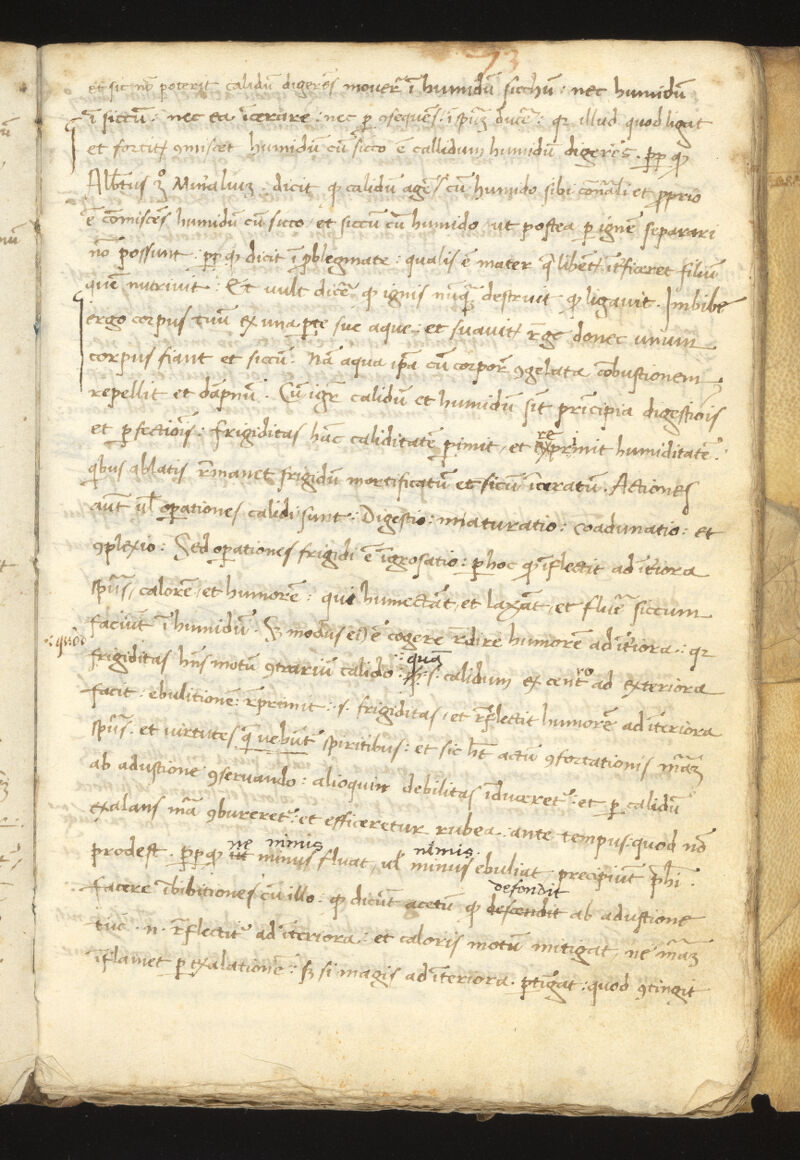 73
et sic nō poterit calidū digerēs mouer̄ ī humidū sicchū : nec humidū
ī siccū : nec ea īcerare : nec ꝑ ꝯsequēs . īspiss̄ ducē : qr̄ illud quod ligat
et fortit̄ ꝯmiscet humidū cū sicco ē callidum humidū digerēs . ꝓp qđ
Alb̄tus 3º Mineraliuꝫ : dicit ꝙ calidū agēs cū humido sibi cōn̄ali et ꝓprio
ē cōmiscēs humidū cū sicco / et siccū cū humido / ut postea ꝑ ignē separari
nō possunt : ꝓp qđ dicit ī ꝓblegmate : qualis ē mater q̄ libent̄ īt̄ficeret filiū
quē nutriuit : Et uult dicē ꝙ ignis nūq̄ destruit qđ ligauit . Imbibe
ergo corpus tuū ex una ꝑte sue aque : et suauit̄ r̄ge donec unum
corpus fiant et siccū : Nā aqua ip̄a cū corpor̄ ꝯgelata cōbustionem
repellit et dāpnū . Cū igr̄ calidū et humidū sūt prīcipia digestiōis
et ꝑfectiōis : frigiditas hāc caliditatē ꝑimit / et exprimit humiditatē .
re
qbus ablatis r̄manet frigidū mortificatū et sicū īceratū . Actiones
aūt ul̄ oꝑationes calidi sunt : Digestio : maturatio : coadunatio : et
ꝯplexio : Sed oꝑationes frigidi ē īgrosatio : ꝑ hoc ꝙ īflectit ad ītiora
sp̄ūs / calorē / et humorē : qui humectāt / et laxāt / et fluē siccum
faciūt ī humidū . Sꝫ modus ei ē cogere r̄dire humorē ad ītiora : qr̄
: quod
frigiditas hn̄s motū ꝯtrariū calido : .s. calidum ex centro ad exteriora
: quā
facit : ebulitionē : r̄primit : .s. frigiditas / et r̄flectit humorē ad īteriora
sp̄ūs . et uirtutes q̄ uebūt spiritibus : et sic ht̄ actū ꝯfortationis mām
ab adustione ꝯseruando : alioquin debilitas īduceret̄ : et ꝑ calidū
exalans mā ꝯbureret̄ : et efficeretur rubea : ante tempus : quod nō
prodest . ꝓp qđ ut minus fluat / ul̄ minus ebuliat precipiūt phī .
ne nimis nimis
facere ībibitiones cū illo : qđ dicūt acetū qđ descendit ab adustione
defendit
tuc̄ . n. r̄flectit ad īteriora : et caloris motū mitigat / ne mām
īflamet ꝑ exalationē : Sꝫ si magis ad īteriora . ꝑtīgat : quod ꝯtingit